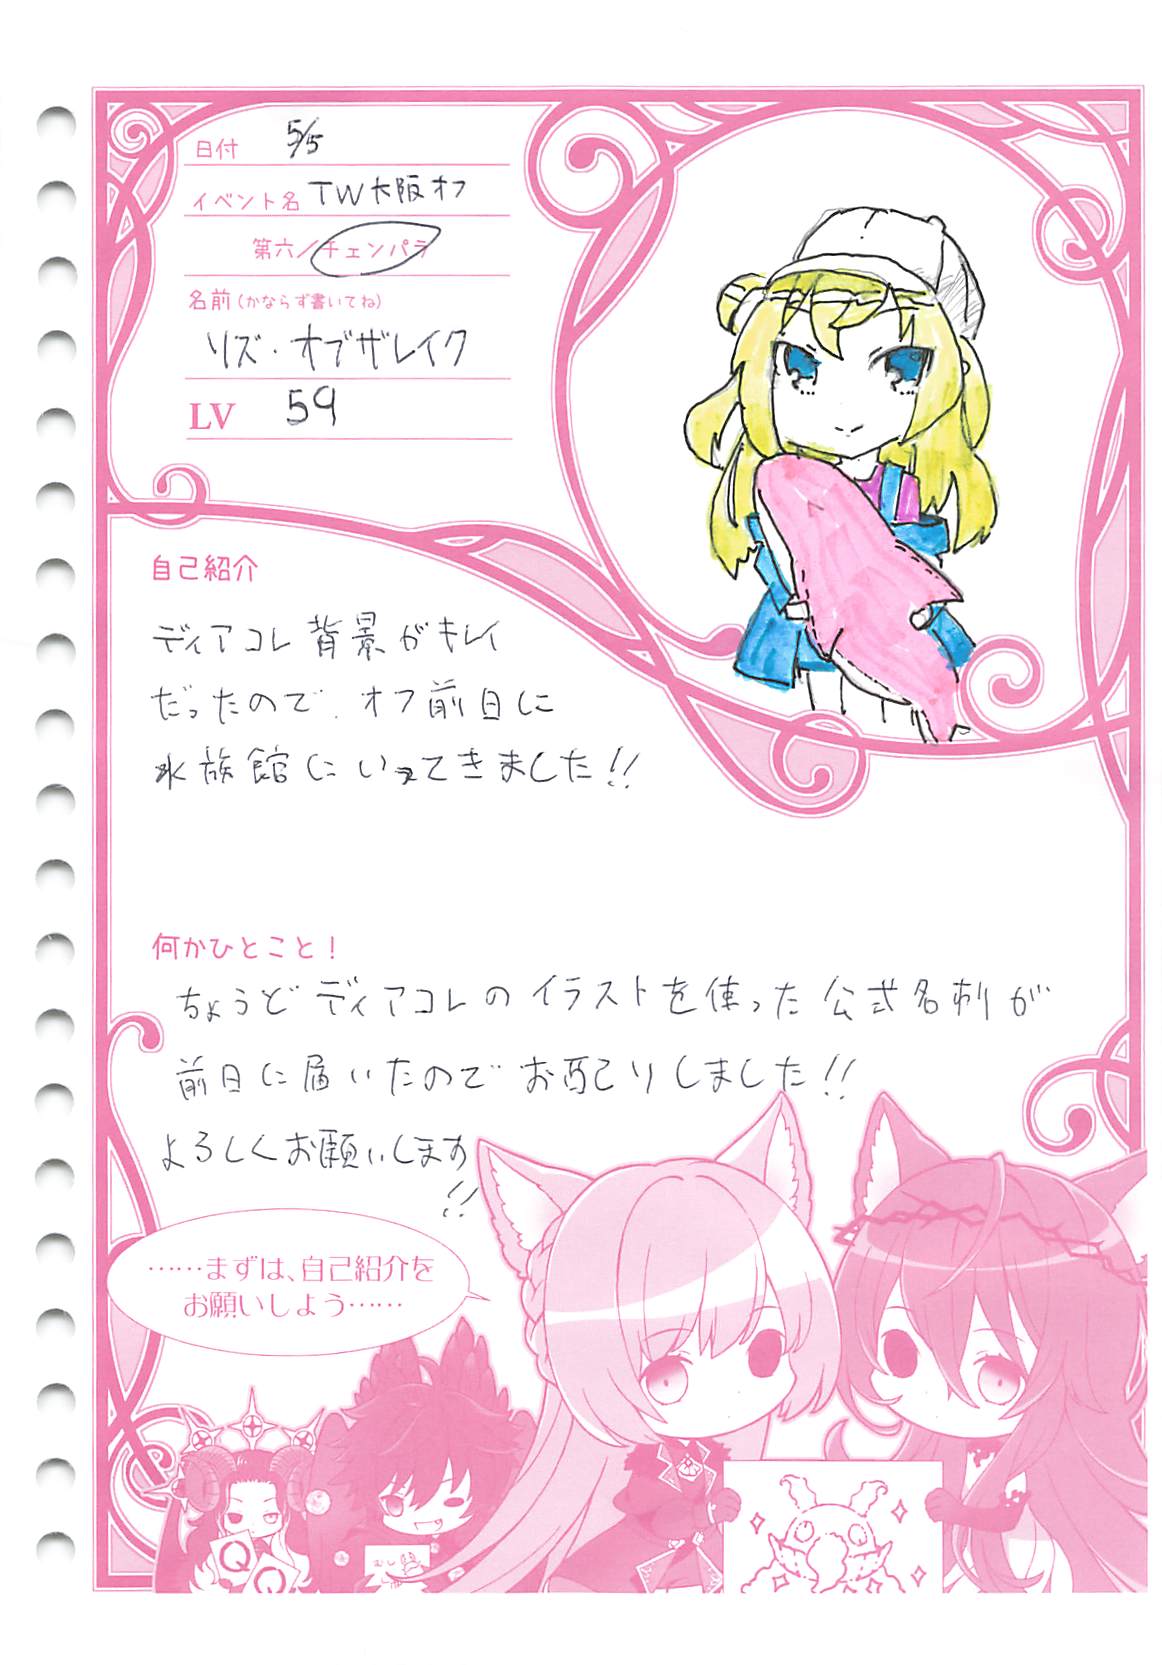 日付 5/5
イベント名 TW大阪オフ
第六／チェンパラ
名前(かならず書いてね)
リズ・オブザレイク
LV 59
自己紹介
ディアコレ背景がキレイ
だったので、オフ前日に
水族館にいってきました!!
何かひとこと！
ちょうどディアコレのイラストを使った公式名刺が
前日に届いたのでお配りしました!!
よろしくお願いします
!!
……まずは、自己紹介を
お願いしよう……
Q Q
むし